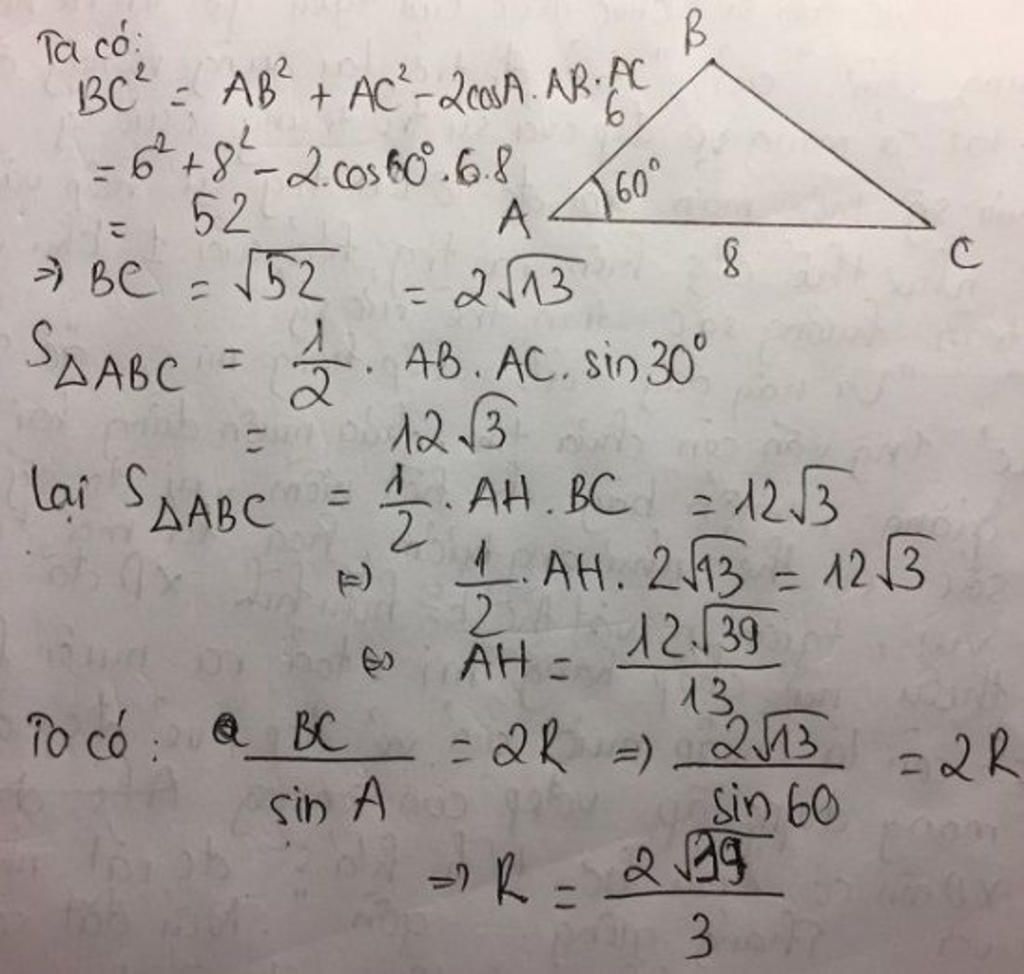 Ta có:
BC² = AB² + AC² - 2cosA. AB. AC
= 6² + 8² - 2.cos60°.6.8
= 52
=> BC = √52 = 2√13
B
6
60°
A
8
C
S△ABC = 1/2 . AB . AC . sin30°
= 12√3
Lại S△ABC = 1/2 . AH . BC = 12√3
<=> 1/2 . AH . 2√13 = 12√3
<=> AH = 12√39/13
Ta có : BC/sin A = 2R => 2√13/sin 60 = 2R
=> R = 2√39/3